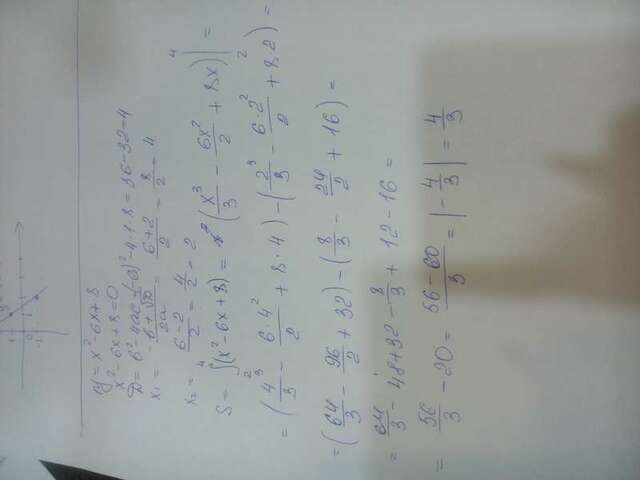 y = x² - 6x + 8
x² - 6x + 8 = 0
D = b² - 4ac = (-6)² - 4·1·8 = 36 - 32 = 4
x₁ = (-b + √D)/2a = (6+2)/2 = 8/2 = 4
x₂ = (6-2)/2 = 4/2 = 2
S = ∫₂⁴ (x² - 6x + 8) = (x³/3 - 6x²/2 + 8x)|₂⁴ =
= (4³/3 - 6·4²/2 + 8·4) - (2³/3 - 6·2²/2 + 8·2) =
= (64/3 - 96/2 + 32) - (8/3 - 24/2 + 16) =
= 64/3 - 48 + 32 - 8/3 + 12 - 16 =
= 56/3 - 20 = (56 - 60)/3 = |-4/3| = 4/3